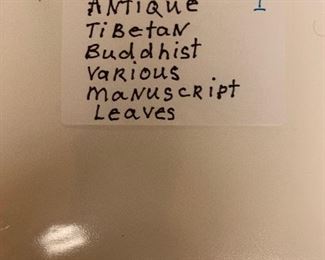 ANTIQUE 1
TiBeTaN
Buddhist
Various
manuscript
Leaves